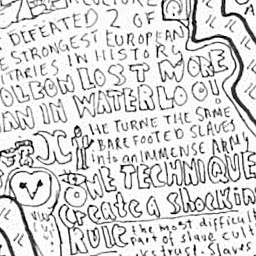 DEFEATED 2 OF
E STRONGEST EUROPEAN
ITARIES IN HISTORY
OLEON LOST MORE
AN IN WATERLOO!
HE TURNE THE SAME
BAREFOOTED SLAVES
into an IMMENSE ARMY
ONE TECHNIQUE
Create a Shockin
RULE the most difficult
part of slave cult
trust. Slaves